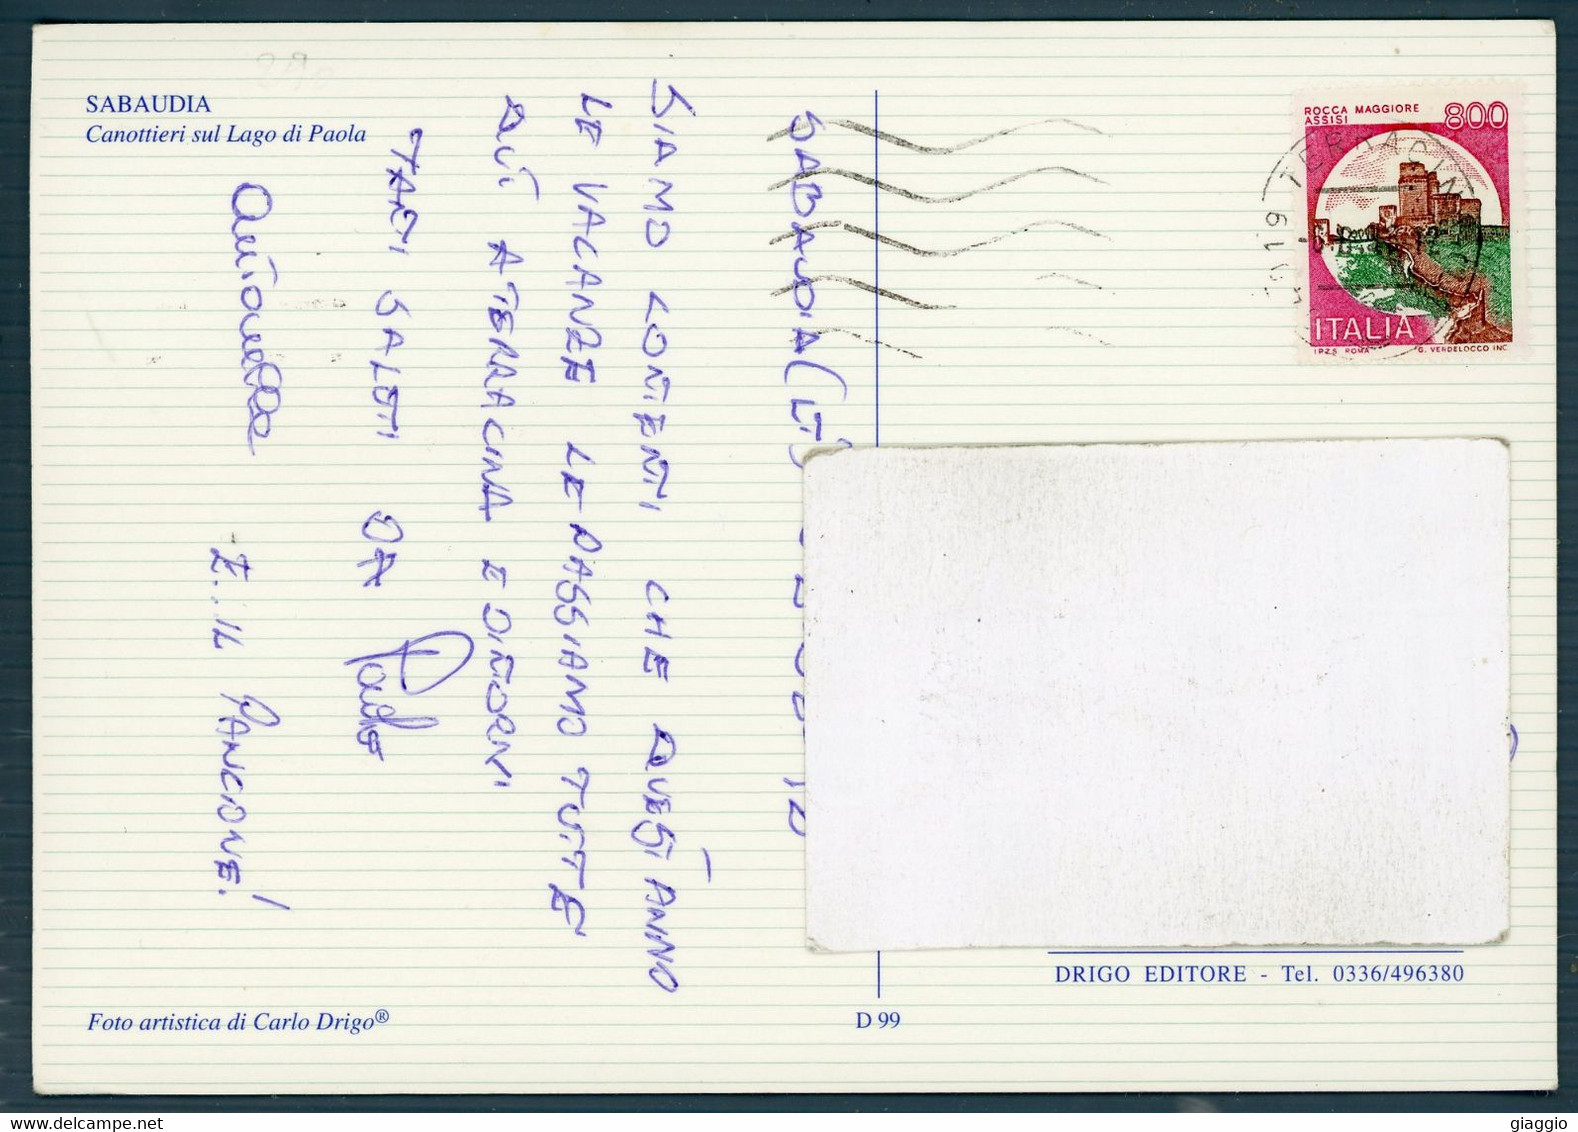 SABAUDIA
Canottieri sul Lago di Paola
ROCCA MAGGIORE
ASSISI
800
ITALIA
I.P.Z.S. ROMA
G. VERDELOCCO INC
SABAUDIA (LT)
SIAMO CONTENTI CHE QUEST'ANNO
LE VACANZE LE PASSIAMO TUTTE
QUÌ A TERRACINA E DINTORNI
TANTI SALUTI DA Paolo
Antonella E.. IL PANCIONE!
DRIGO EDITORE - Tel. 0336/496380
Foto artistica di Carlo Drigo®
D 99
giaggio